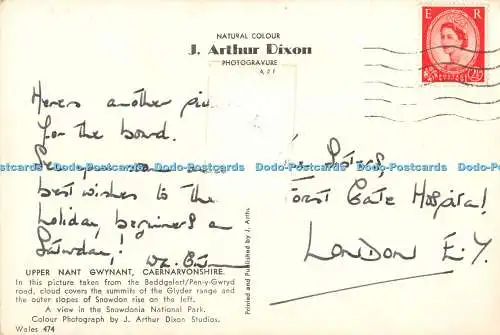 NATURAL COLOUR
J. Arthur Dixon
PHOTOGRAVURE
E R
Here's another
for the board.
best wishes to the
holiday beginners on
Saturday!
Sisters,
Forest Gate Hospital,
LONDON E.7.
Dodo-Postcards Dodo-Postcards Dodo-Postcards Dodo-Postcards Dodo-Postcards
Printed and Published by J. Arthu
UPPER NANT GWYNANT, CAERNARVONSHIRE.
In this picture taken from the Beddgelert/Pen-y-Gwryd
road, cloud covers the summits of the Glyder range and
the outer slopes of Snowdon rise on the left.
A view in the Snowdonia National Park.
Colour Photograph by J. Arthur Dixon Studios.
Wales 474